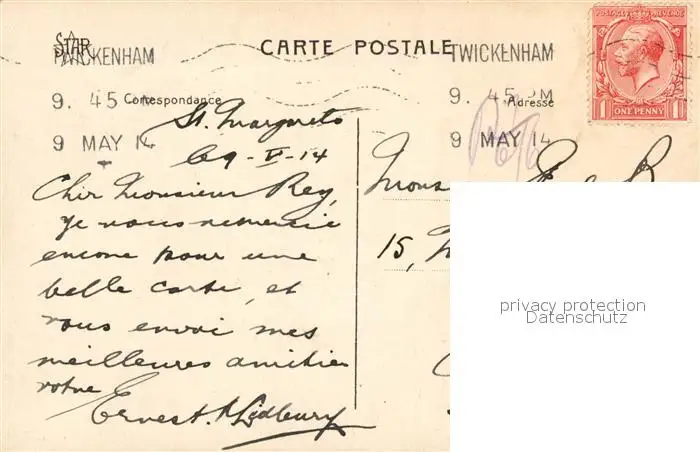 STAR
CARTE POSTALE
TWICKENHAM
9. 45 PM
9 MAY 14
TWICKENHAM
9. 45 PM
9 MAY 14
POSTAGE REVENUE
1 ONE PENNY 1
Correspondance
Adresse
St. Margarets
le 9-V-14
Cher Monsieur Rey,
je vous remercie
encore pour une
belle carte, et
vous envoi mes
meilleures amitiés
votre
Ernest A Ledbury
Mons
15,
privacy protection
Datenschutz